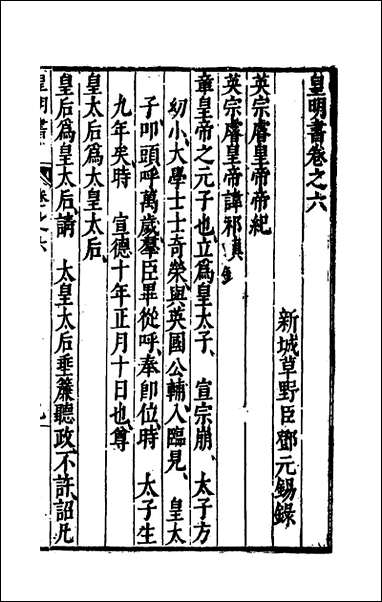 皇明書卷之六
新城草野臣鄧元錫錄
英宗睿皇帝帝紀
英宗睿皇帝諱祁眞
章皇帝之元子也立爲皇太子、宣宗崩、太子方
幼小、大學士士奇榮、與英國公輔、入臨見、皇太
子叩頭、呼萬歲羣臣畢從呼、奉卽位、時太子生
九年矣、時宣德十年正月十日也、尊
皇太后爲太皇太后、
皇后爲皇太后、請太皇太后垂簾聽政、不許、詔凡
皇明書
卷之六